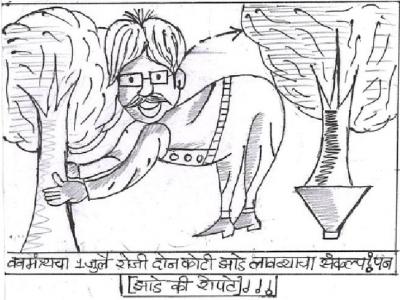 वनमंत्र्याचा १ जुलै रोजी दोन कोटी झाडे लावण्याचा संकल्प! पण
[झाडे की रोपटे]!!!